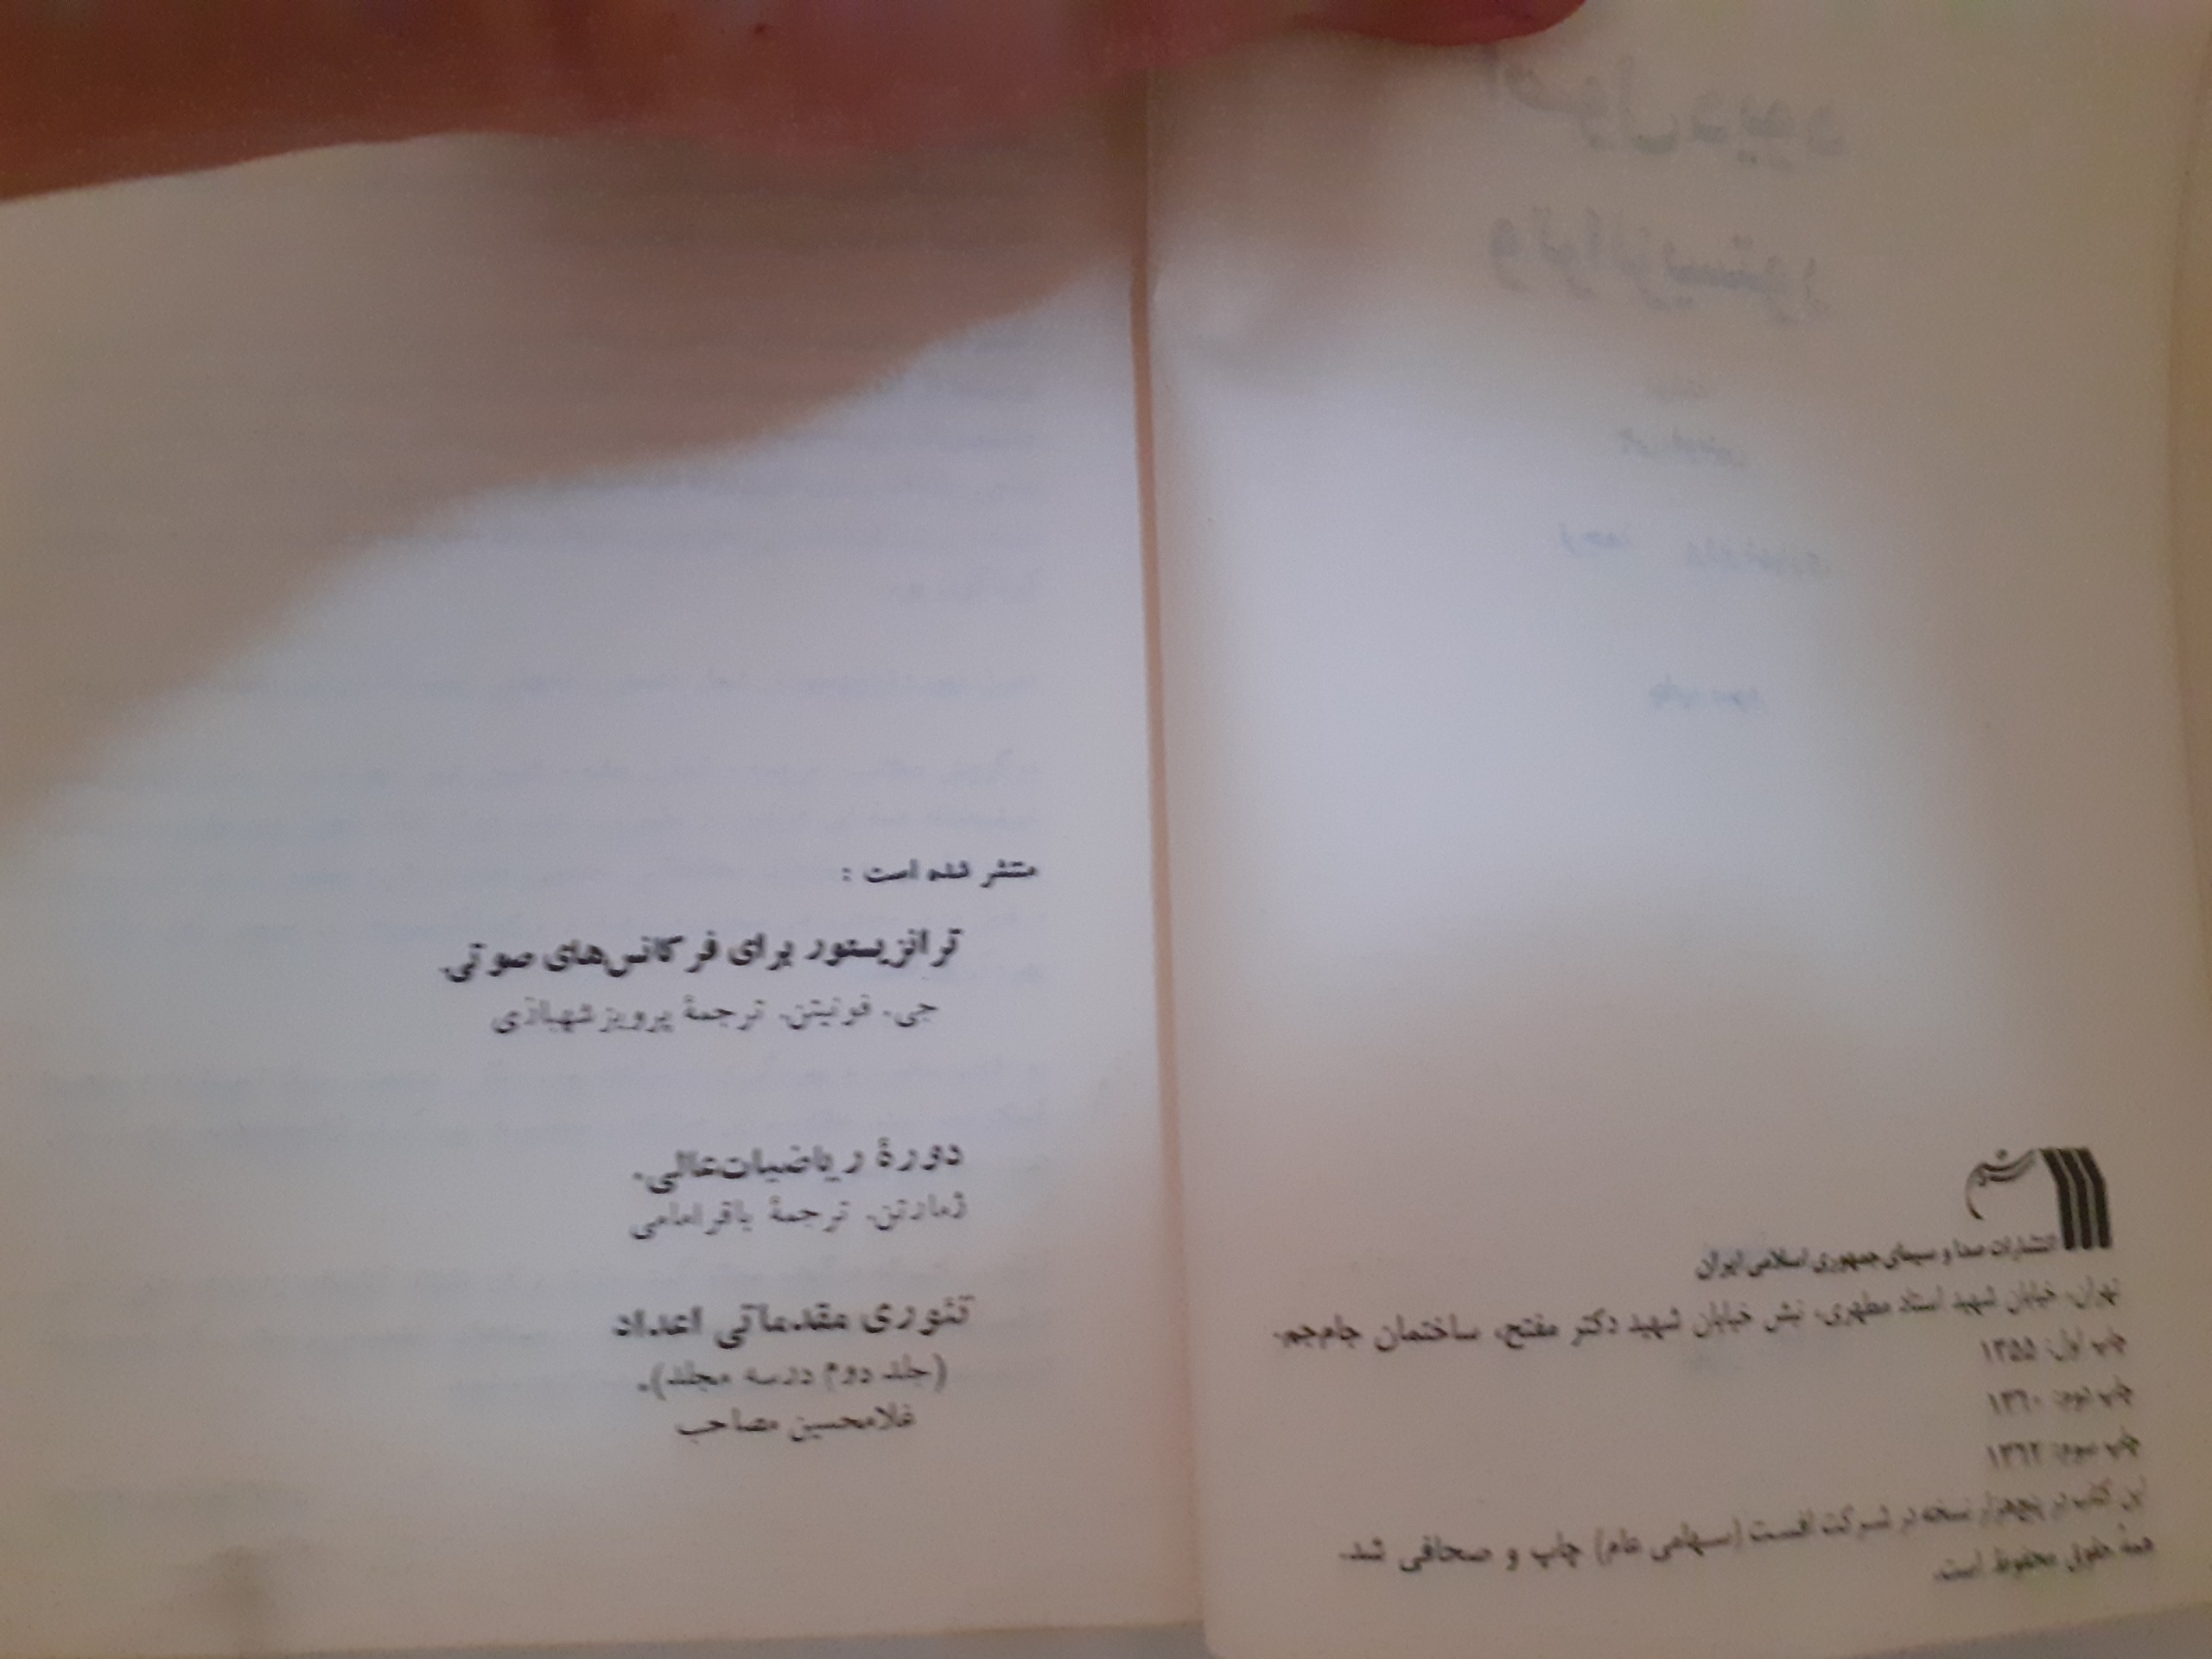 سروش
انتشارات صدا و سیمای جمهوری اسلامی ایران
تهران، خیابان شهید استاد مطهری، نبش خیابان شهید دکتر مفتح، ساختمان جام‌جم.
چاپ اول: ۱۳۵۵
چاپ دوم: ۱۳۶۰
چاپ سوم: ۱۳۶۲
این کتاب در پنج‌هزار نسخه در شرکت افست (سهامی عام) چاپ و صحافی شد.
همهٔ حقوق محفوظ است.
منتشر شده است :
ترانزیستور برای فرکانس‌های صوتی.
جی. فونیتن. ترجمهٔ پرویز شهبازی
دورهٔ ریاضیات‌عالی.
ژمارتن. ترجمهٔ باقر امامی
تئوری مقدماتی اعداد
(جلد دوم درسه مجلد).
غلامحسین مصاحب